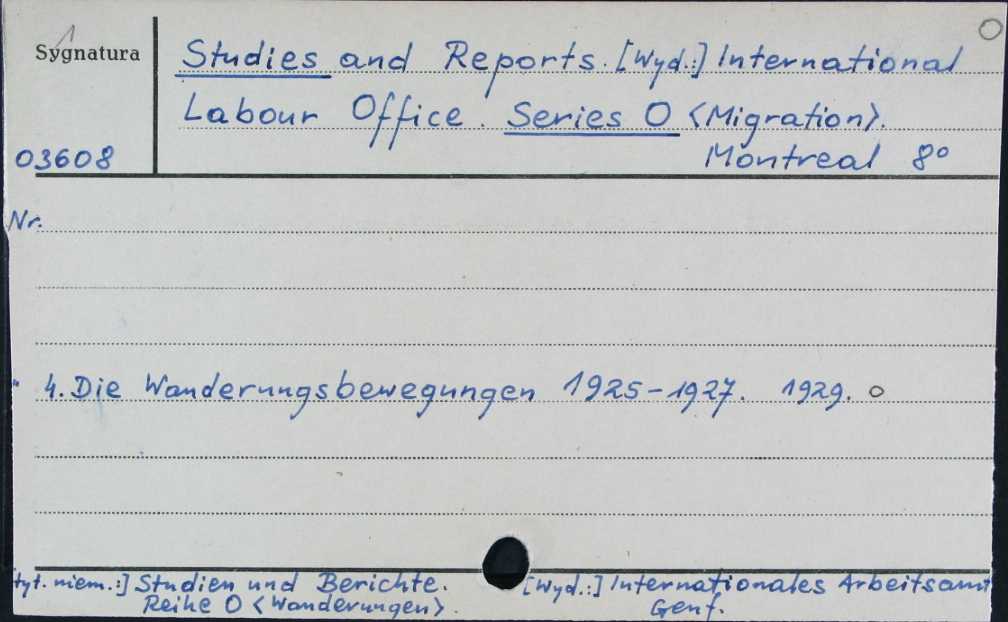 Sygnatura
Studies and Reports. [Wyd.:] International
Labour Office. Series O <Migration>.
03608
Montreal 8°
Nr.
" 4. Die Wanderungsbewegungen 1925-1927. 1929. o
[tyt. niem.:] Studien und Berichte. [Wyd.:] Internationales Arbeitsamt
Reihe O <Wanderungen>. Genf.